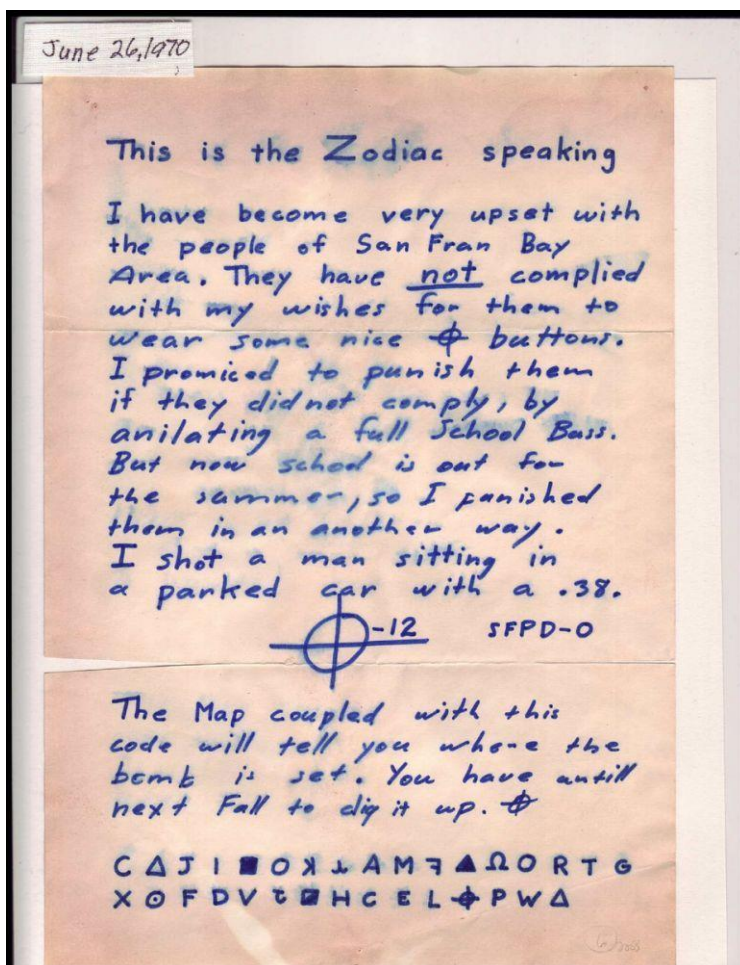 June 26, 1970
This is the Zodiac speaking
I have become very upset with
the people of San Fran Bay
Area. They have not complied
with my wishes for them to
wear some nice ⌖ buttons.
I promiced to punish them
if they did not comply, by
anilating a full School Buss.
But now school is out for
the summer, so I punished
them in an another way.
I shot a man sitting in
a parked car with a .38.
⌖-12 SFPD-0
The Map coupled with this
code will tell you where the
bomb is set. You have antill
next Fall to dig it up. ⌖
C Δ J I ■ O ꓘ ⅄ A M ꟻ ▲ Ω O R T G
X ⊙ F D V Ɛ ◪ H C E L ⌖ P W Δ